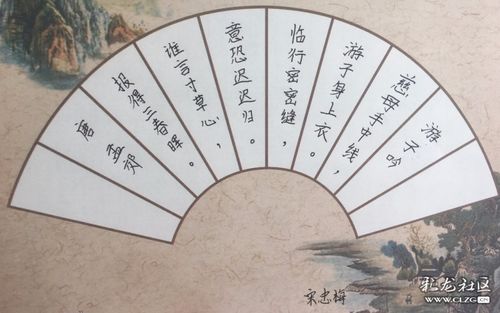 游子吟
慈母手中线，
游子身上衣。
临行密密缝，
意恐迟迟归。
谁言寸草心，
报得三春晖。
唐 孟郊
宋忠梅
彩龙社区
WWW.CLZG.CN